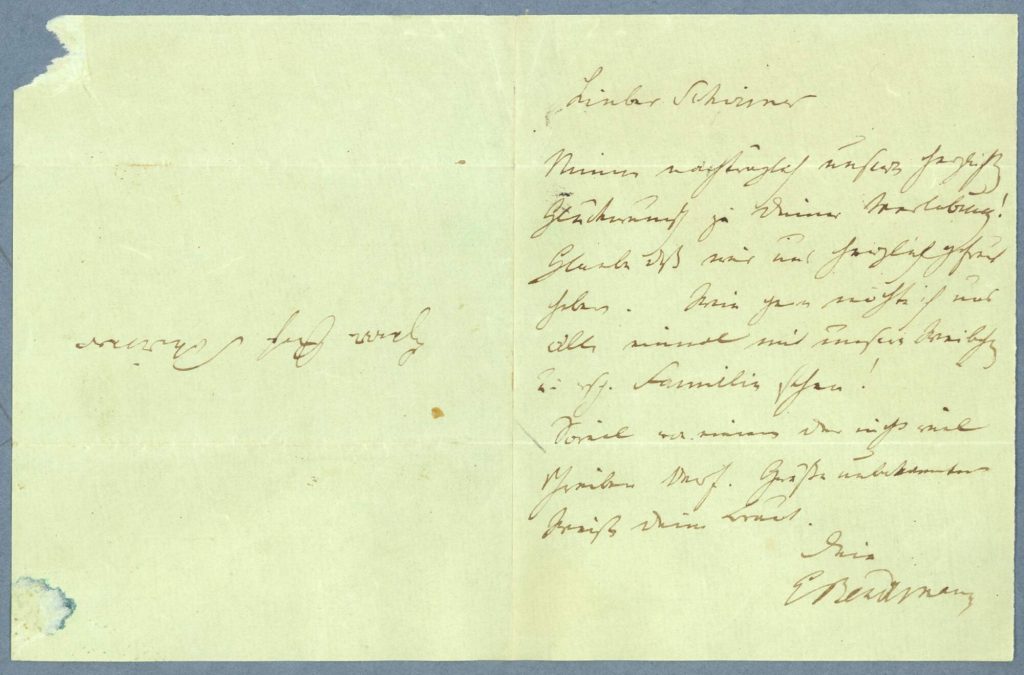 Lieber Schirmer
Nimm nachträglich unsern herzlichsten
Glückwunsch zu Deiner Verlobung!
Glaube daß wir uns herzlich gefreut
haben. Wie gern möchte ich uns
alle einmal mit unsern Weibchen
u. resp. Familie sehen!
Soviel von einem der nicht viel
schreiben darf. Grüße unbekannter
Weise Deine Braut.
Dein
E Bendemann
Herrn Prof. Schirmer